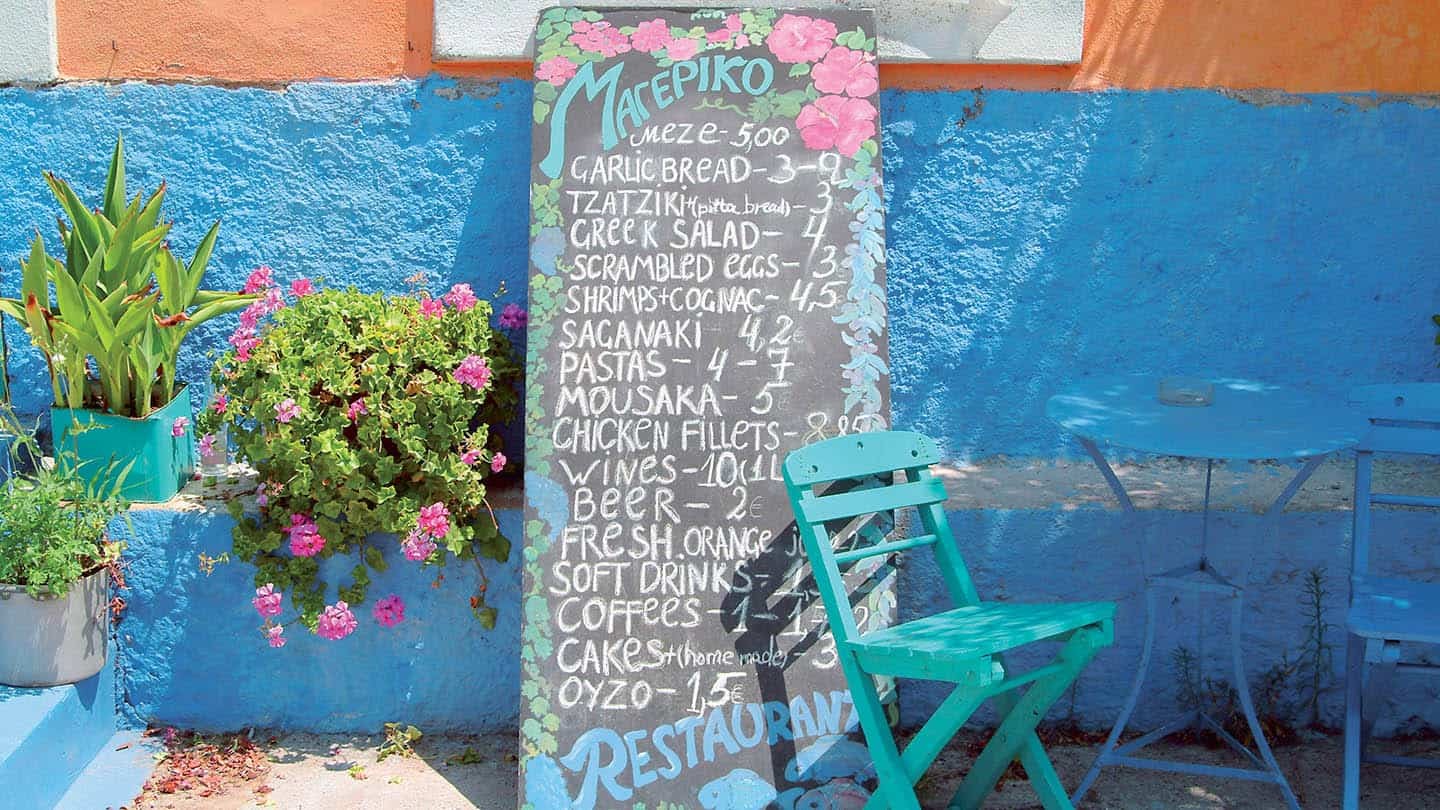 ΜαγεΡΙΚΟ
Meze - 5,00
GARLIC BREAD - 3 - 9
TZATZIKI + (pitta bread) - 3
GREEK SALAD - 4
SCRAMBLED EGGS - 3
SHRIMPS + COGNAC - 4,5
SAGANAKI 4,2€
PASTAS - 4 - 7
MOUSAKA - 5€
CHICKEN FILLETS -
WINES - 10 (1L
BEER - 2€
FRESH ORANGE
SOFT DRINKS -
COFFEES - 1 -
CAKES + (home made) - 3
ΟΥΖΟ - 1,5€
RESTAURANT